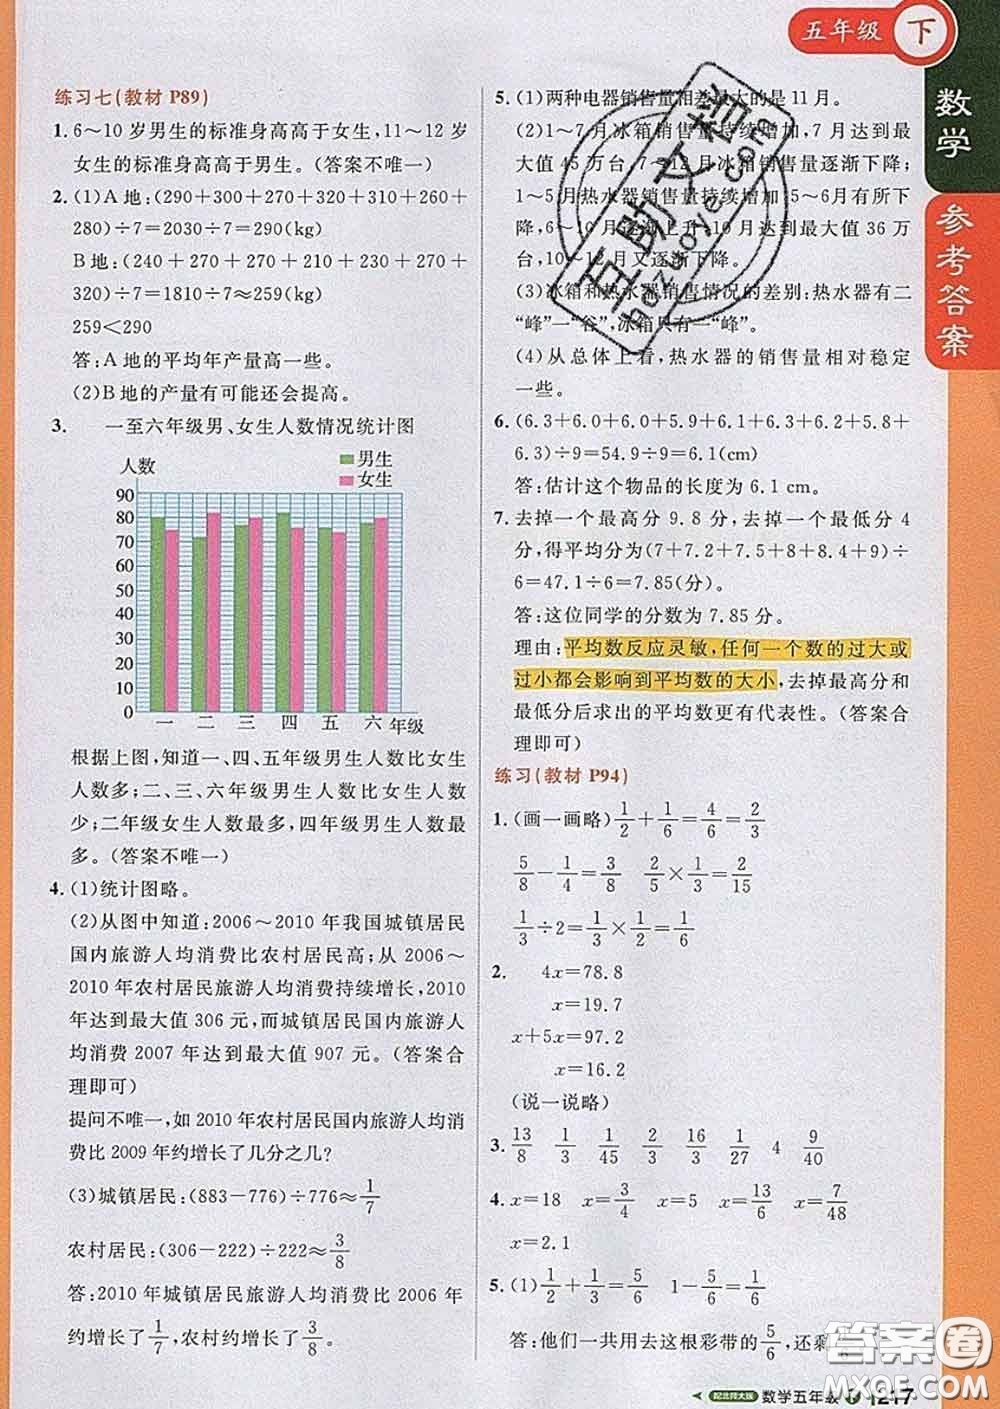 五年级 下
数学
参考答案
练习七(教材 P89)
1. 6～10 岁男生的标准身高高于女生,11～12 岁
女生的标准身高高于男生。(答案不唯一)
2. (1)A 地:(290+300+270+320+310+260+
280)÷7=2030÷7=290(kg)
B 地:(240+210+270+230+270+270+
320)÷7=1810÷7≈259(kg)
259<290
答:A 地的平均年产量高一些。
(2)B 地的产量有可能还会提高。
3. 一至六年级男、女生人数情况统计图
人数
男生
女生
90
80
70
60
50
40
30
20
10
0
一 二 三 四 五 六 年级
根据上图,知道一、四、五年级男生人数比女生
人数多;二、三、六年级男生人数比女生人数
少;二年级女生人数最多,四年级男生人数最
多。(答案不唯一)
4. (1)统计图略。
(2)从图中知道:2006～2010 年我国城镇居民
国内旅游人均消费比农村居民高;从 2006～
2010 年农村居民旅游人均消费持续增长,2010
年达到最大值 306 元,而城镇居民国内旅游人
均消费 2007 年达到最大值 907 元。(答案合
理即可)
提问不唯一,如 2010 年农村居民国内旅游人均消
费比 2009 年约增长了几分之几?
(3)城镇居民:(883−776)÷776≈1/7
农村居民:(306−222)÷222≈3/8
答:2010 年城镇居民国内旅游人均消费比 2006 年
约增长了1/7,农村约增长了3/8。
5. (1)两种电器销售量相差最大的是 11 月。
(2)1～7 月冰箱销售量持续增加,7 月达到最
大值 45 万台,7～12 月冰箱销售量逐渐下降;
1～5月热水器销售量持续增加,5～6月有所下
降,6～10 月逐渐上升,10 月达到最大值 36 万
台,10～12 月又逐渐下降。
(3)冰箱和热水器销售情况的差别:热水器有二
“峰”一“谷”,冰箱只有一“峰”。
(4)从总体上看,热水器的销售量相对稳定
一些。
6. (6.3+6.0+6.0+5.9+6.1+6.3+6.2+5.8+
6.3)÷9=54.9÷9=6.1(cm)
答:估计这个物品的长度为 6.1 cm。
7. 去掉一个最高分 9.8 分,去掉一个最低分 4
分,得平均分为(7+7.2+7.5+8+8.4+9)÷
6=47.1÷6=7.85(分)。
答:这位同学的分数为 7.85 分。
理由:平均数反应灵敏,任何一个数的过大或
过小都会影响到平均数的大小,去掉最高分和
最低分后求出的平均数更有代表性。(答案合
理即可)
练习(教材 P94)
1. (画一画略)1/2+1/6=4/6=2/3
5/8−1/4=3/8 2/5×1/3=2/15
1/3÷2=1/3×1/2=1/6
2. 4x=78.8
x=19.7
x+5x=97.2
x=16.2
(说一说略)
3. 13/8 1/3 1/45 2/3 16/3 1/27 4 9/40
4. x=18 x=3/4 x=5 x=13/6 x=7/6
x=2.1
5. (1)1/2+1/3=5/6 1−5/6=1/6
答:他们一共用去这根彩带的5/6,还剩
配北师大版 数学五年级 下 217
互助文档
hezuoye.com
答案圈